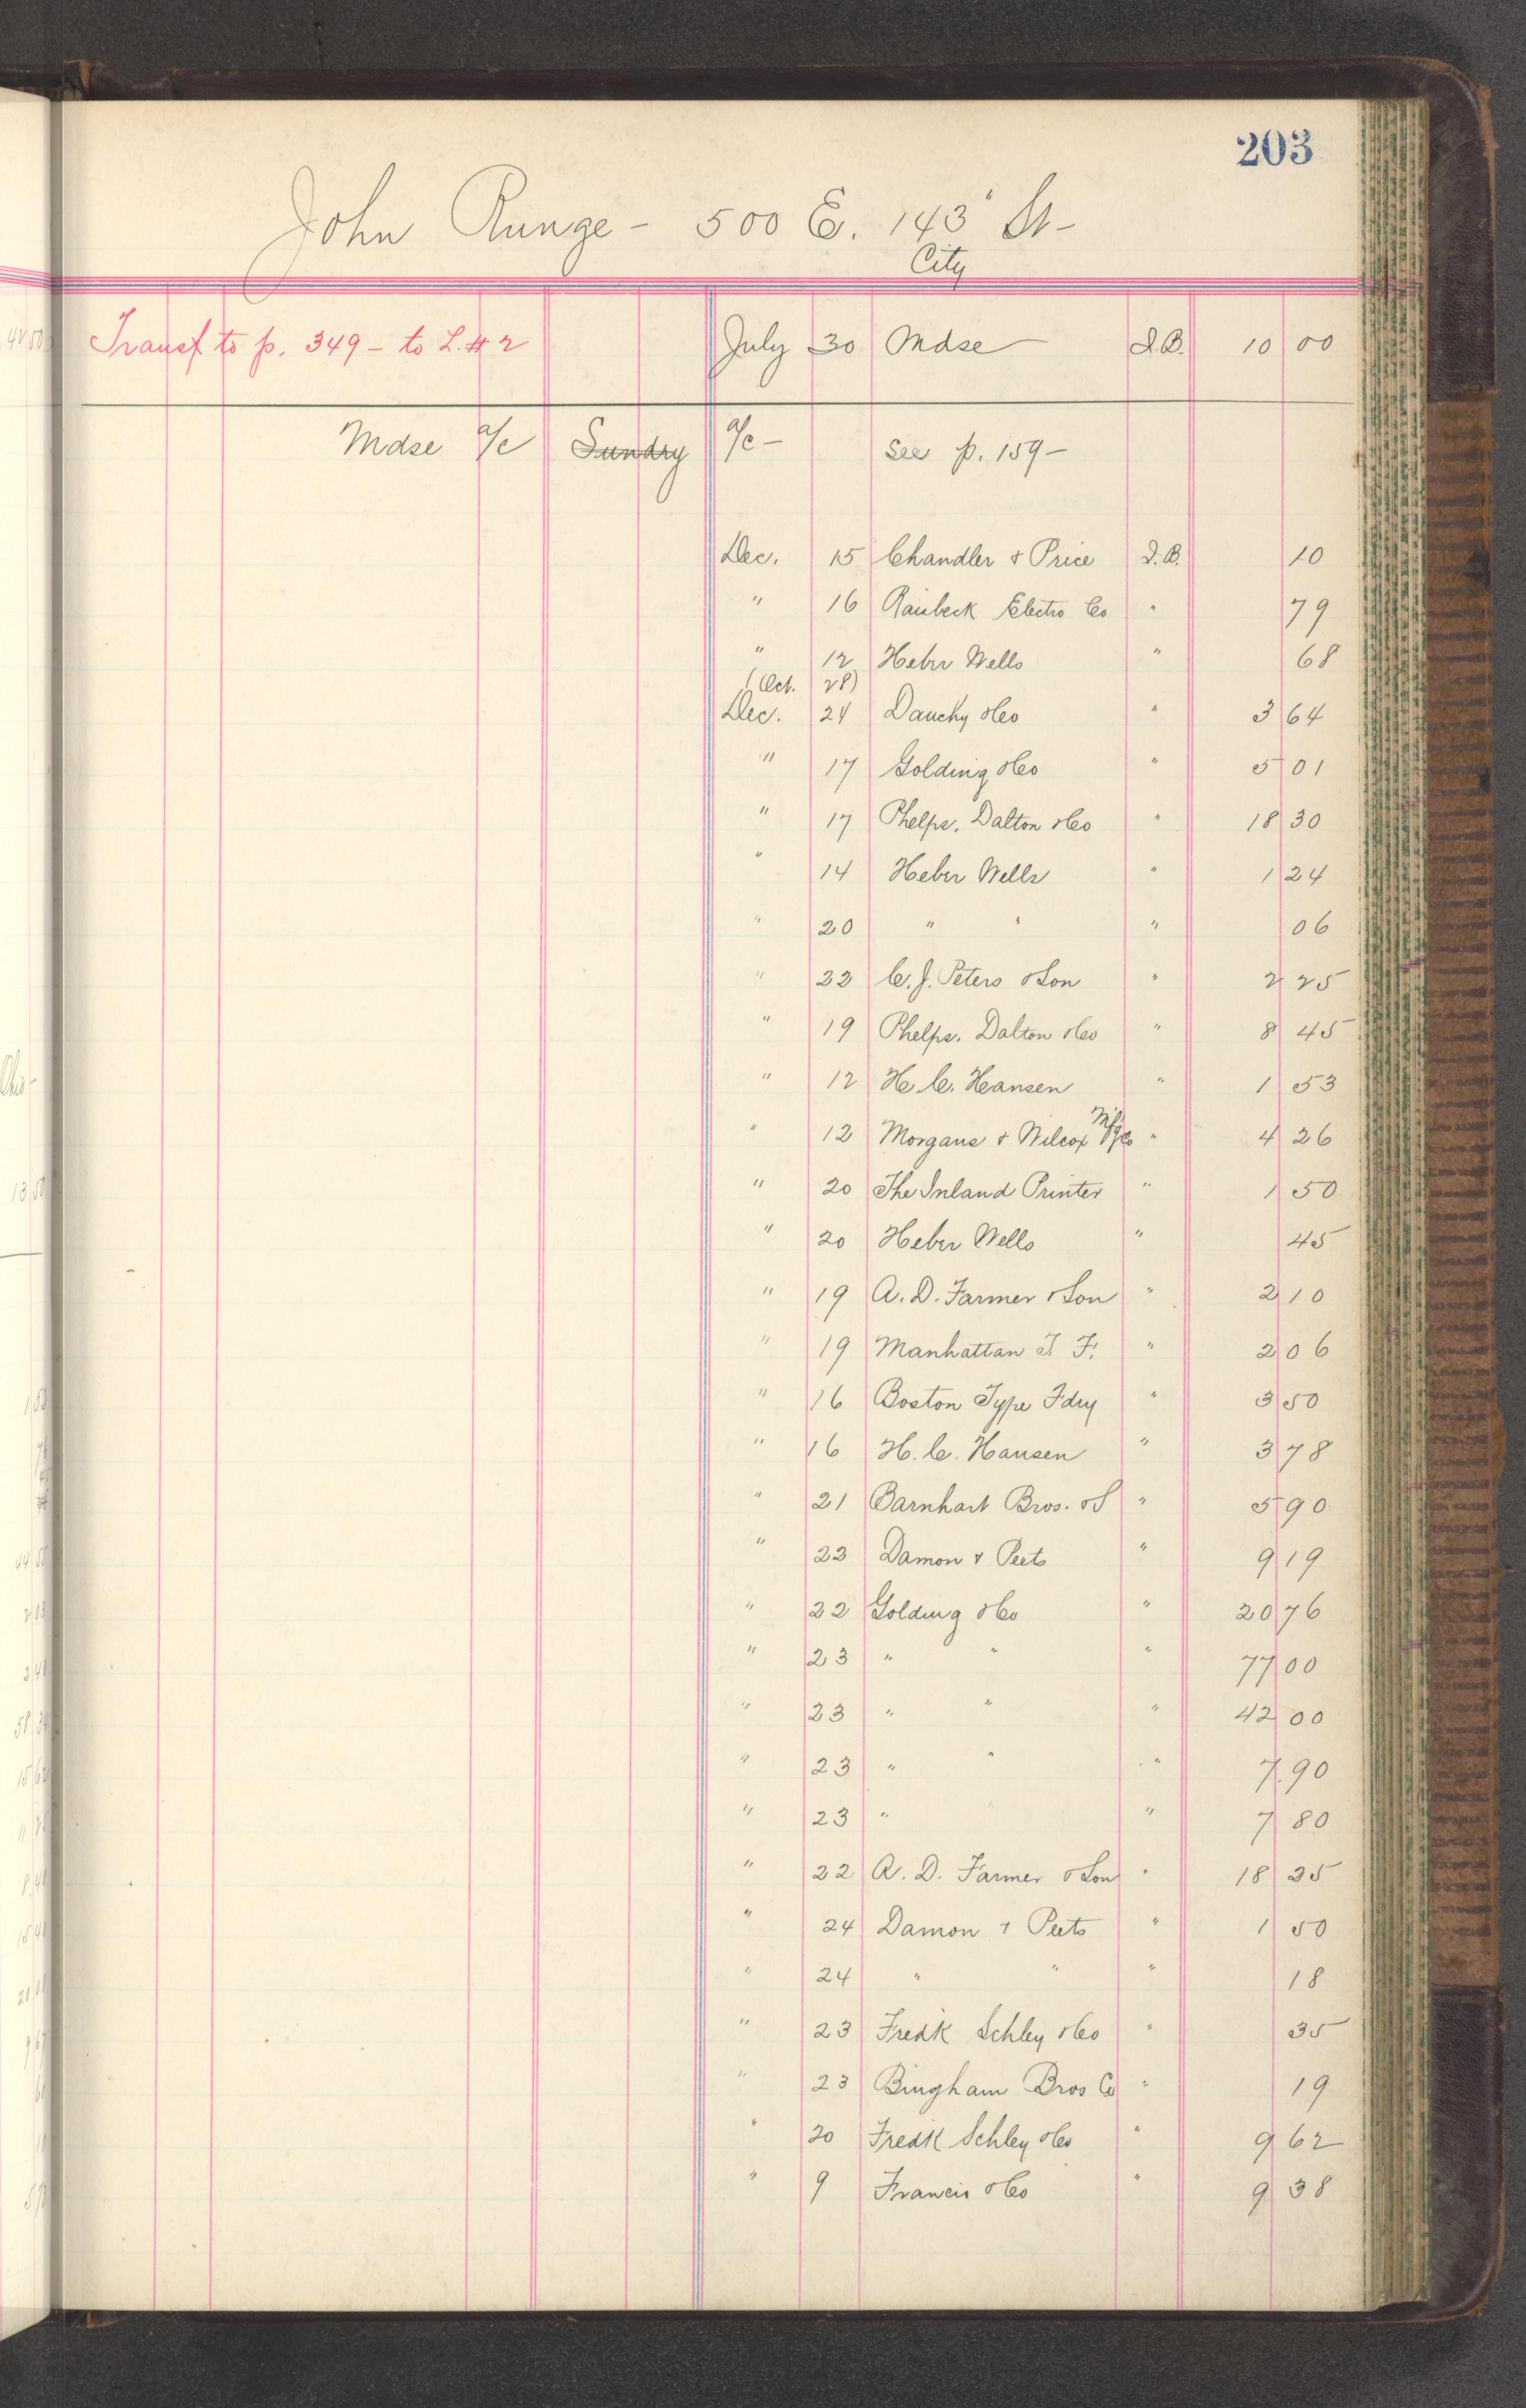 203
John Runge - 500 E. 143" St-
City
Transf. to p. 349 - to L. # 2 July 30 Mdse I.B. 10 00
Mdse a/c Sundry a/c - See p. 159 -
Dec. 15 Chandler & Price I.B. 10
" 16 Raisbeck Electro Co " 79
" 12 Heber Wells " 68
(Oct. 28)
Dec. 24 Dauchy & Co " 3 64
" 17 Golding & Co " 5 01
" 17 Phelps, Dalton & Co " 18 30
" 14 Heber Wells " 1 24
" 20 " " " 06
" 22 C. J. Peters & Son " 2 25
" 19 Phelps. Dalton & Co " 8 45
" 12 H. C. Hansen " 1 53
" 12 Morgans & Wilcox Mfg Co " 4 26
" 20 The Inland Printer " 1 50
" 20 Heber Wells " 45
" 19 A. D. Farmer & Son " 2 10
" 19 Manhattan T. F. " 2 06
" 16 Boston Type Fdry " 3 50
" 16 H. C. Hansen " 3 78
" 21 Barnhart Bros. & S " 5 90
" 23 Damon & Peets " 9 19
" 22 Golding & Co " 20 76
" 23 " " " 77 00
" 23 " " " 42 00
" 23 " " " 7.90
" 23 " " " 7 80
" 22 A. D. Farmer & Son " 18 35
" 24 Damon & Peets " 1 50
" 24 " " " 18
" 23 Fredk Schley & Co " 35
" 23 Bingham Bros Co " 19
" 20 Fredk Schley & Co " 9 62
" 9 Francis & Co " 9 38